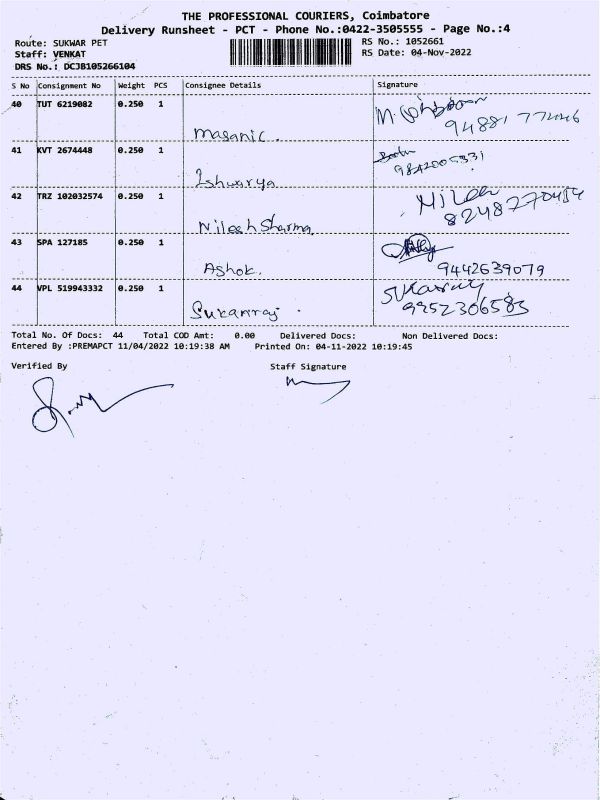 THE PROFESSIONAL COURIERS, Coimbatore
Delivery Runsheet - PCT - Phone No.:0422-3505555 - Page No.:4
Route: SUKWAR PET RS No.: 1052661
Staff: VENKAT RS Date: 04-Nov-2022
DRS No.: DCJB105266104
S No Consignment No Weight PCS Consignee Details Signature
40 TUT 6219082 0.250 1
masanic.
41 KVT 2674448 0.250 1
Ishwarya
42 TRZ 102032574 0.250 1
Nilesh Sharma
43 SPA 127185 0.250 1
Ashok. 9442639079
44 VPL 519943332 0.250 1
Sukanraj. 9952306583
Total No. Of Docs: 44 Total COD Amt: 0.00 Delivered Docs: Non Delivered Docs:
Entered By :PREMAPCT 11/04/2022 10:19:38 AM Printed On: 04-11-2022 10:19:45
Verified By Staff Signature